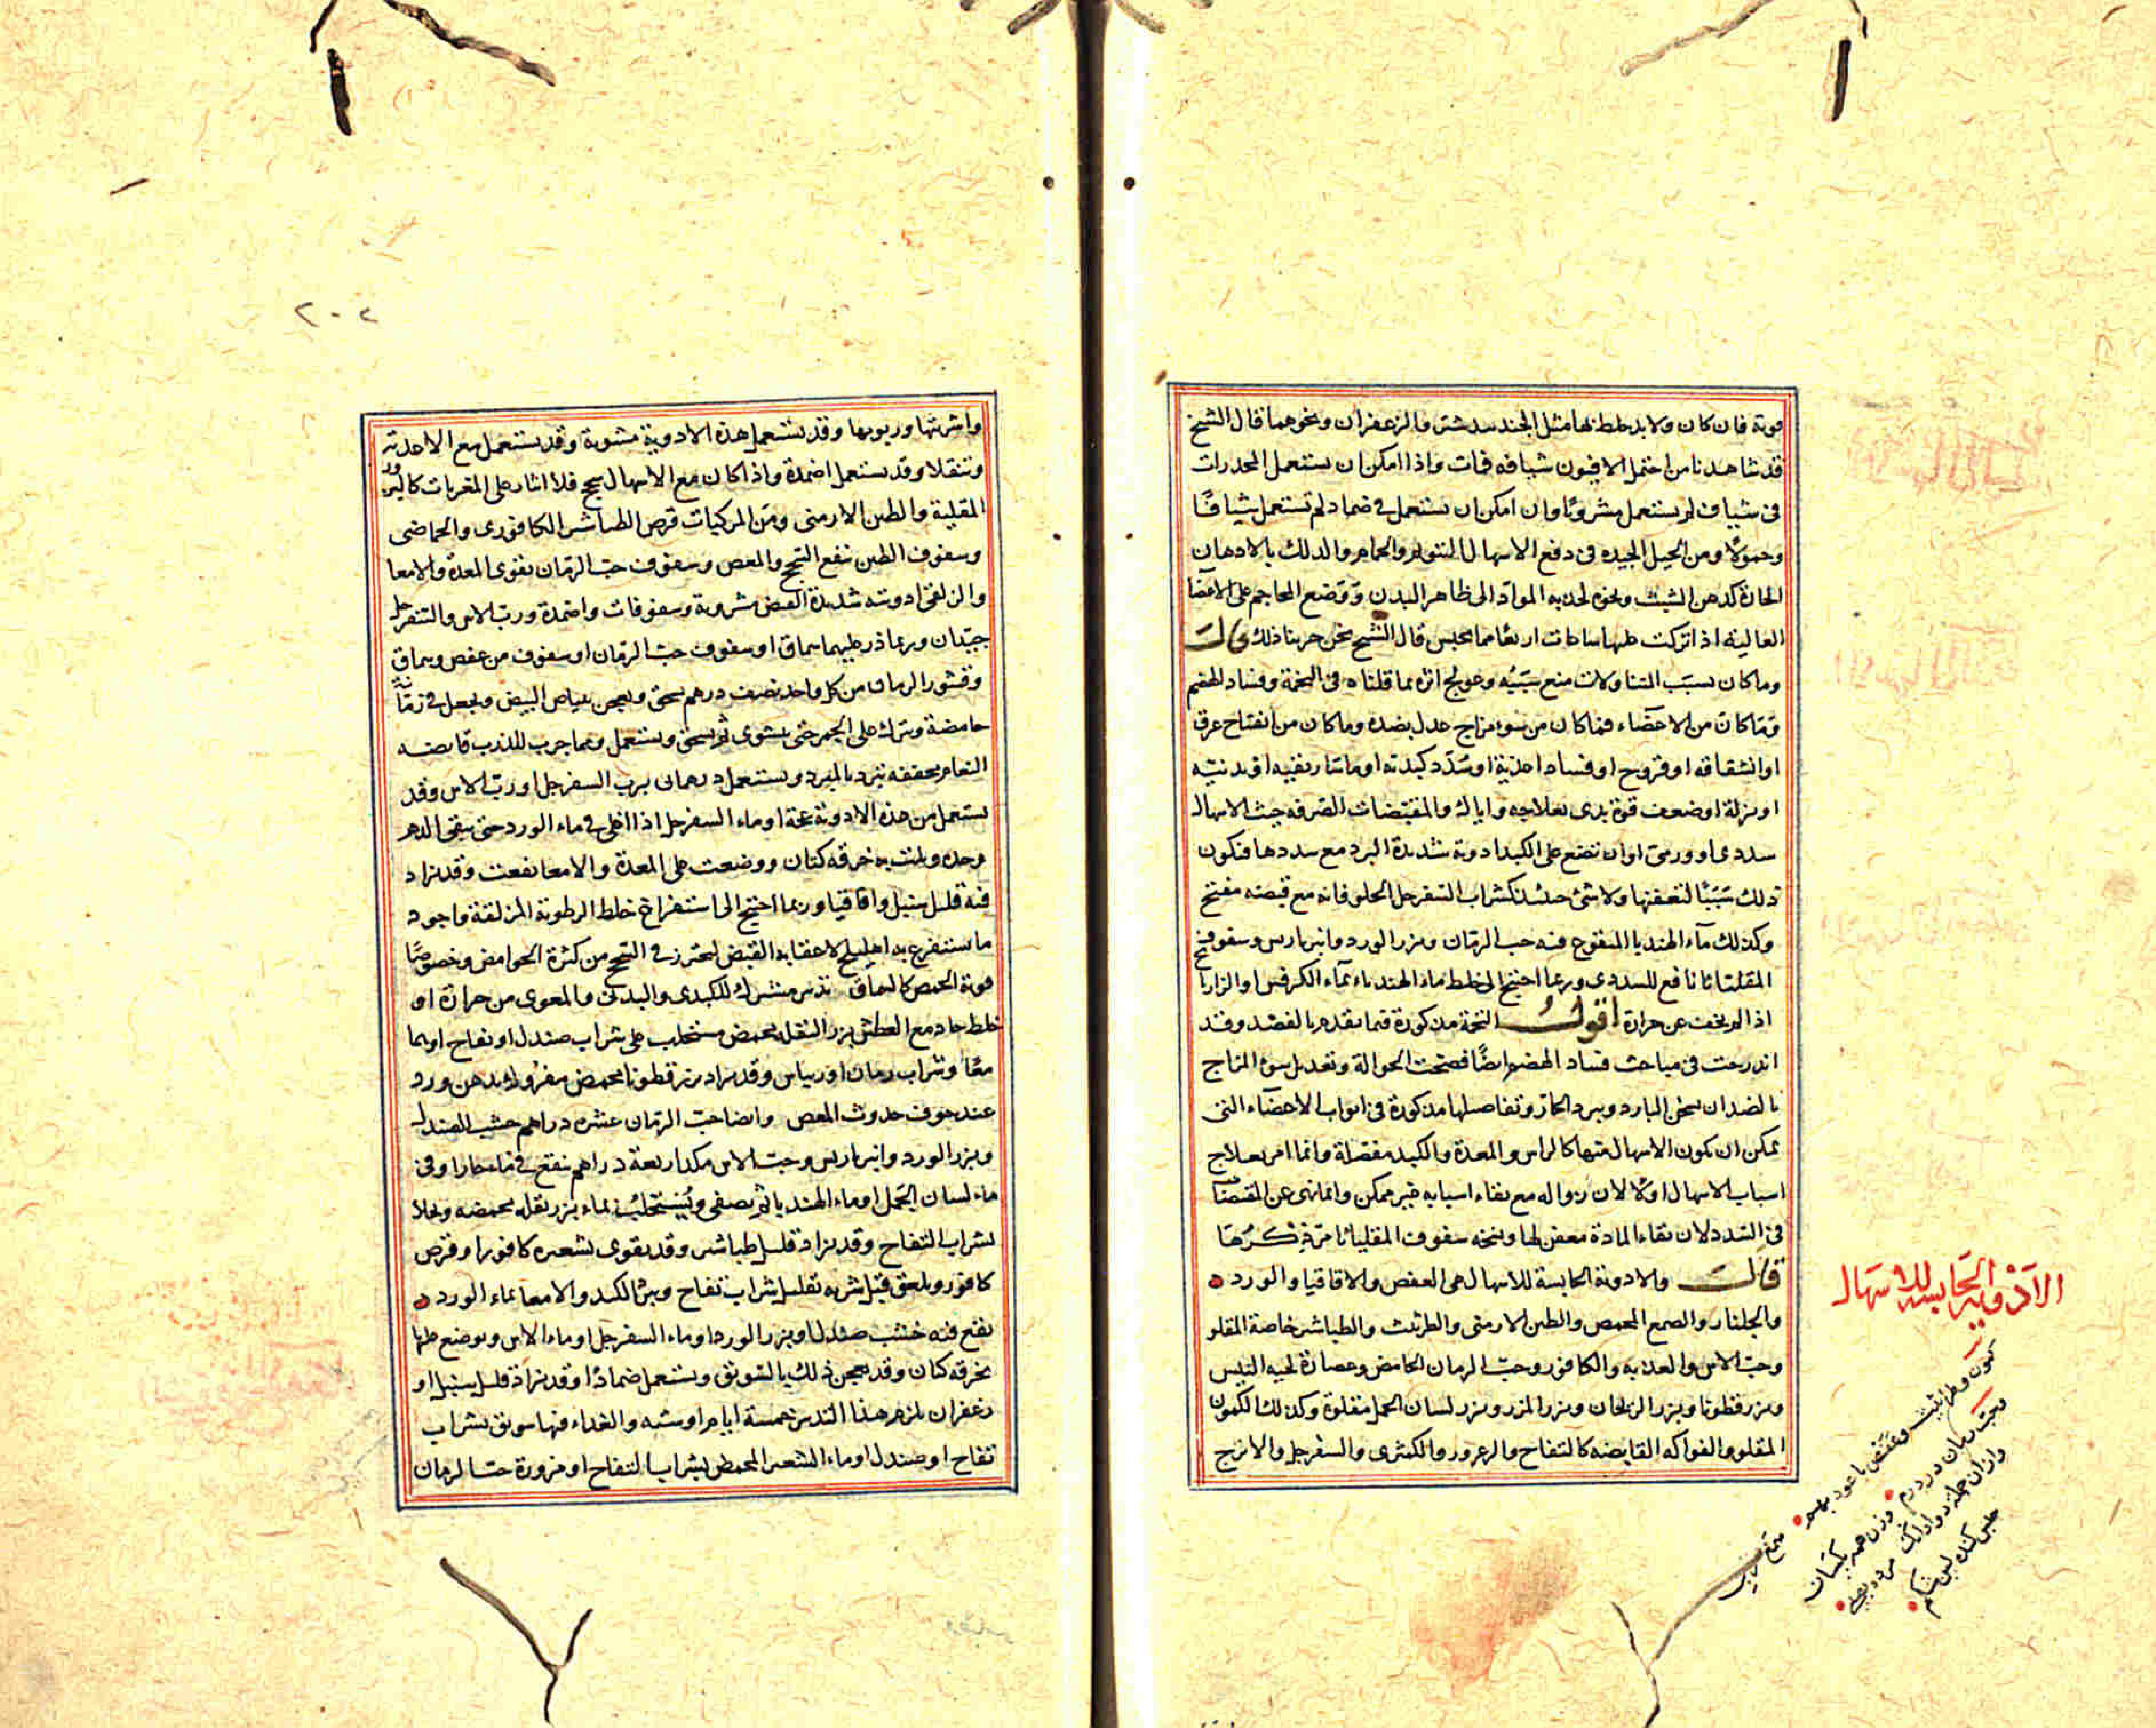 قوته فان كان ولا بد خلط بها مثل الجندبيدستر والزعفران ونحوهما قال الشيخ
قد شاهدنا من احتمل الافيون شيافه فمات واذا امكن ان يستعمل المخدرات
فى شياف لم يستعمل مشروبًا وان امكن ان يستعمل فى ضماد لم تستعمل شيافًا
وحمولًا ومن الحيل الجيده فى دفع الاسهال التنويم والحمام والدلك بالادهان
الحارة كدهن الشبث ونحوه لجذبه المواد الى ظاهر البدن ووضع المحاجم على الاعضا
العاليه اذا تركت عليها ساعات اربعًا مما يحبس قال الشيخ نحن جربنا ذلك قالَ
وما كان بسبب التناولات منع سببه وعولج اثره بما قلناه فى التخمة وفساد الهضم
وما كان من الاعضاء فما كان من سوء مزاج عدل بضده وما كان من انفتاح عرق
او انشقاقه او قروح او فساد اغذية او سدد كبديه او ماساريقيه او بدنيه
او نزلة او ضعف قوة بدى بعلاجه واياك والمقبضات الصرفه حيث الاسهال
سددى او ورمى او ان تضع على الكبد ادوية شديدة البرد مع سددها فتكون
ذلك سببًا لتعفنها ولا شئ حينئذ كشراب السفرجل الحلو فانه مع قبضه مفتح
وكذلك ماء الهندبا المنقوع فيه حب الرمان وبزر الورد وانبرباريس وسفوف
المقلياثا نافع للسددى وربما احتيج الى خلط ماء الهندباء بماء الكرفس او الرازيا
اذا لم يخف عن حرارة اقولُ التخمة مذكورة فيما تقدم بالفصد وقد
اندرجت فى مباحث فساد الهضم ايضًا فصحت الحوالة وتعديل سوء المزاج
بالضد ان يسخن البارد ويبرد الحار وتفاصيلها مذكورة فى ابواب الاعضاء التى
يمكن ان يكون الاسهال منها كالراس والمعدة والكبد مفصلة وانما امر بعلاج
اسباب الاسهال اولا لان زواله مع بقاء اسبابه غير ممكن وانما نهى عن المقبضات
فى السدد لان بقاء المادة معفن لها ونسخه سفوف المقلياثا مر ذكرها
قالَ والادوية الحابسة للاسهال هى العفص والاقاقيا والورد
والجلنار والصمغ المحمص والطين الارمنى والطراثيث والطباشير خاصة المقلو
وحب الاس والعذبه والكافور وحب الرمان الحامض وعصارة لحيه التيس
وبزر قطونا وبزر الريحان وبزر المرو وبزر لسان الحمل مقلوة وكذلك الكمون
المقلو والفواكه القابضه كالتفاح والزعرور والكمثرى والسفرجل والاترج
الادويه الحابسه للاسهال
كمون وطراثيث وعفص با عود بهم
وحب رمان در درم وزن همه يكسان
وازان جمله دو دانك
حبس كننده لين شكم
٢٠٢
واشربتها وربوبها وقد يستعمل هذه الادوية مشوية وقد يستعمل مع الاغذيه
وتنقلا وقد يستعمل اضمدة واذا كان مع الاسهال سحج فلا ايثار على المغريات كالبزور
المقلية والطين الارمنى ومن المركبات قرص الطباشير الكافورى والحماضى
وسفوف الطين ينفع السحج والمغص وسفوف حب الرمان يقوى المعدة والامعا
والزلقى ادويته شديدة القبض مشروبة وسفوفات واضمدة ورب الاس والسفرجل
جيدان وربما ذر عليهما سماق او سفوف حب الرمان او سفوف من عفص وسماق
وقشور الرمان من كل واحد نصف درهم يسحق ويعجن ببياض البيض ويجعل فى رمانة
حامضة وتترك على الجمر حتى يشوى ثم يسحق ويستعمل ومما جرب للذرب قانصه
النعام مجففه تبرد بالمبرد ويستعمل درهمان برب السفرجل او رب الاس وقد
يستعمل من هذه الادوية عدة او ماء السفرجل اذا اغلى فى ماء الورد حتى يبقى الدهن
وحده وبلت به خرقه كتان ووضعت على المعدة والامعا نفعت وقد يزاد
فيه قليل سنبل واقاقيا وربما احتيج الى استفراغ خلط الرطوبة المزلقة واجود
ما يستفرغ به اهليلج لاعقابه القبض ليحترز فى السحج من كثرة الحوامض وخصوصًا
قوية الحمض كالسماق تدبير مشترك للكبدى والبدنى والمعوى من حرارة او
خلط حاد مع العطش بزر البقله محمص مستحلب على شراب صندل او تفاح او بهما
معًا وشراب رمان او ريباس وقد يزاد بزر قطونا محمص مفروك بدهن ورد
عند خوف حدوث المغص وايضا حب الرمان عشره دراهم خشب الصندل
وبزر الورد وانبرباريس وحب الاس مكد اربعة دراهم ينقع فى ماء حار او فى
ماء لسان الحمل او ماء الهندبا ثم يصفى ويُستحلب بماء بزر بقله محمصه ويحلا
بشراب التفاح وقد يزاد قليل طباشير وقد يقوى بشعيره كافور او قرص
كافور ويلعق قبل شربه بقليل شراب تفاح ويبرد الكبد والامعا بماء الورد
ينقع فيه خشب صندل او بزر الورد او ماء السفرجل او ماء الاس ويوضع عليها
بخرقه كتان وقد يعجن ذلك بالسويق ويستعمل ضمادًا وقد يزاد قليل سنبل او
زعفران يلزم هذا التدبير خمسة ايام او سته والغداء فيها سويق بشراب
تفاح او صندل او ماء الشعير المحمص بشراب التفاح او مزورة حب الرمان